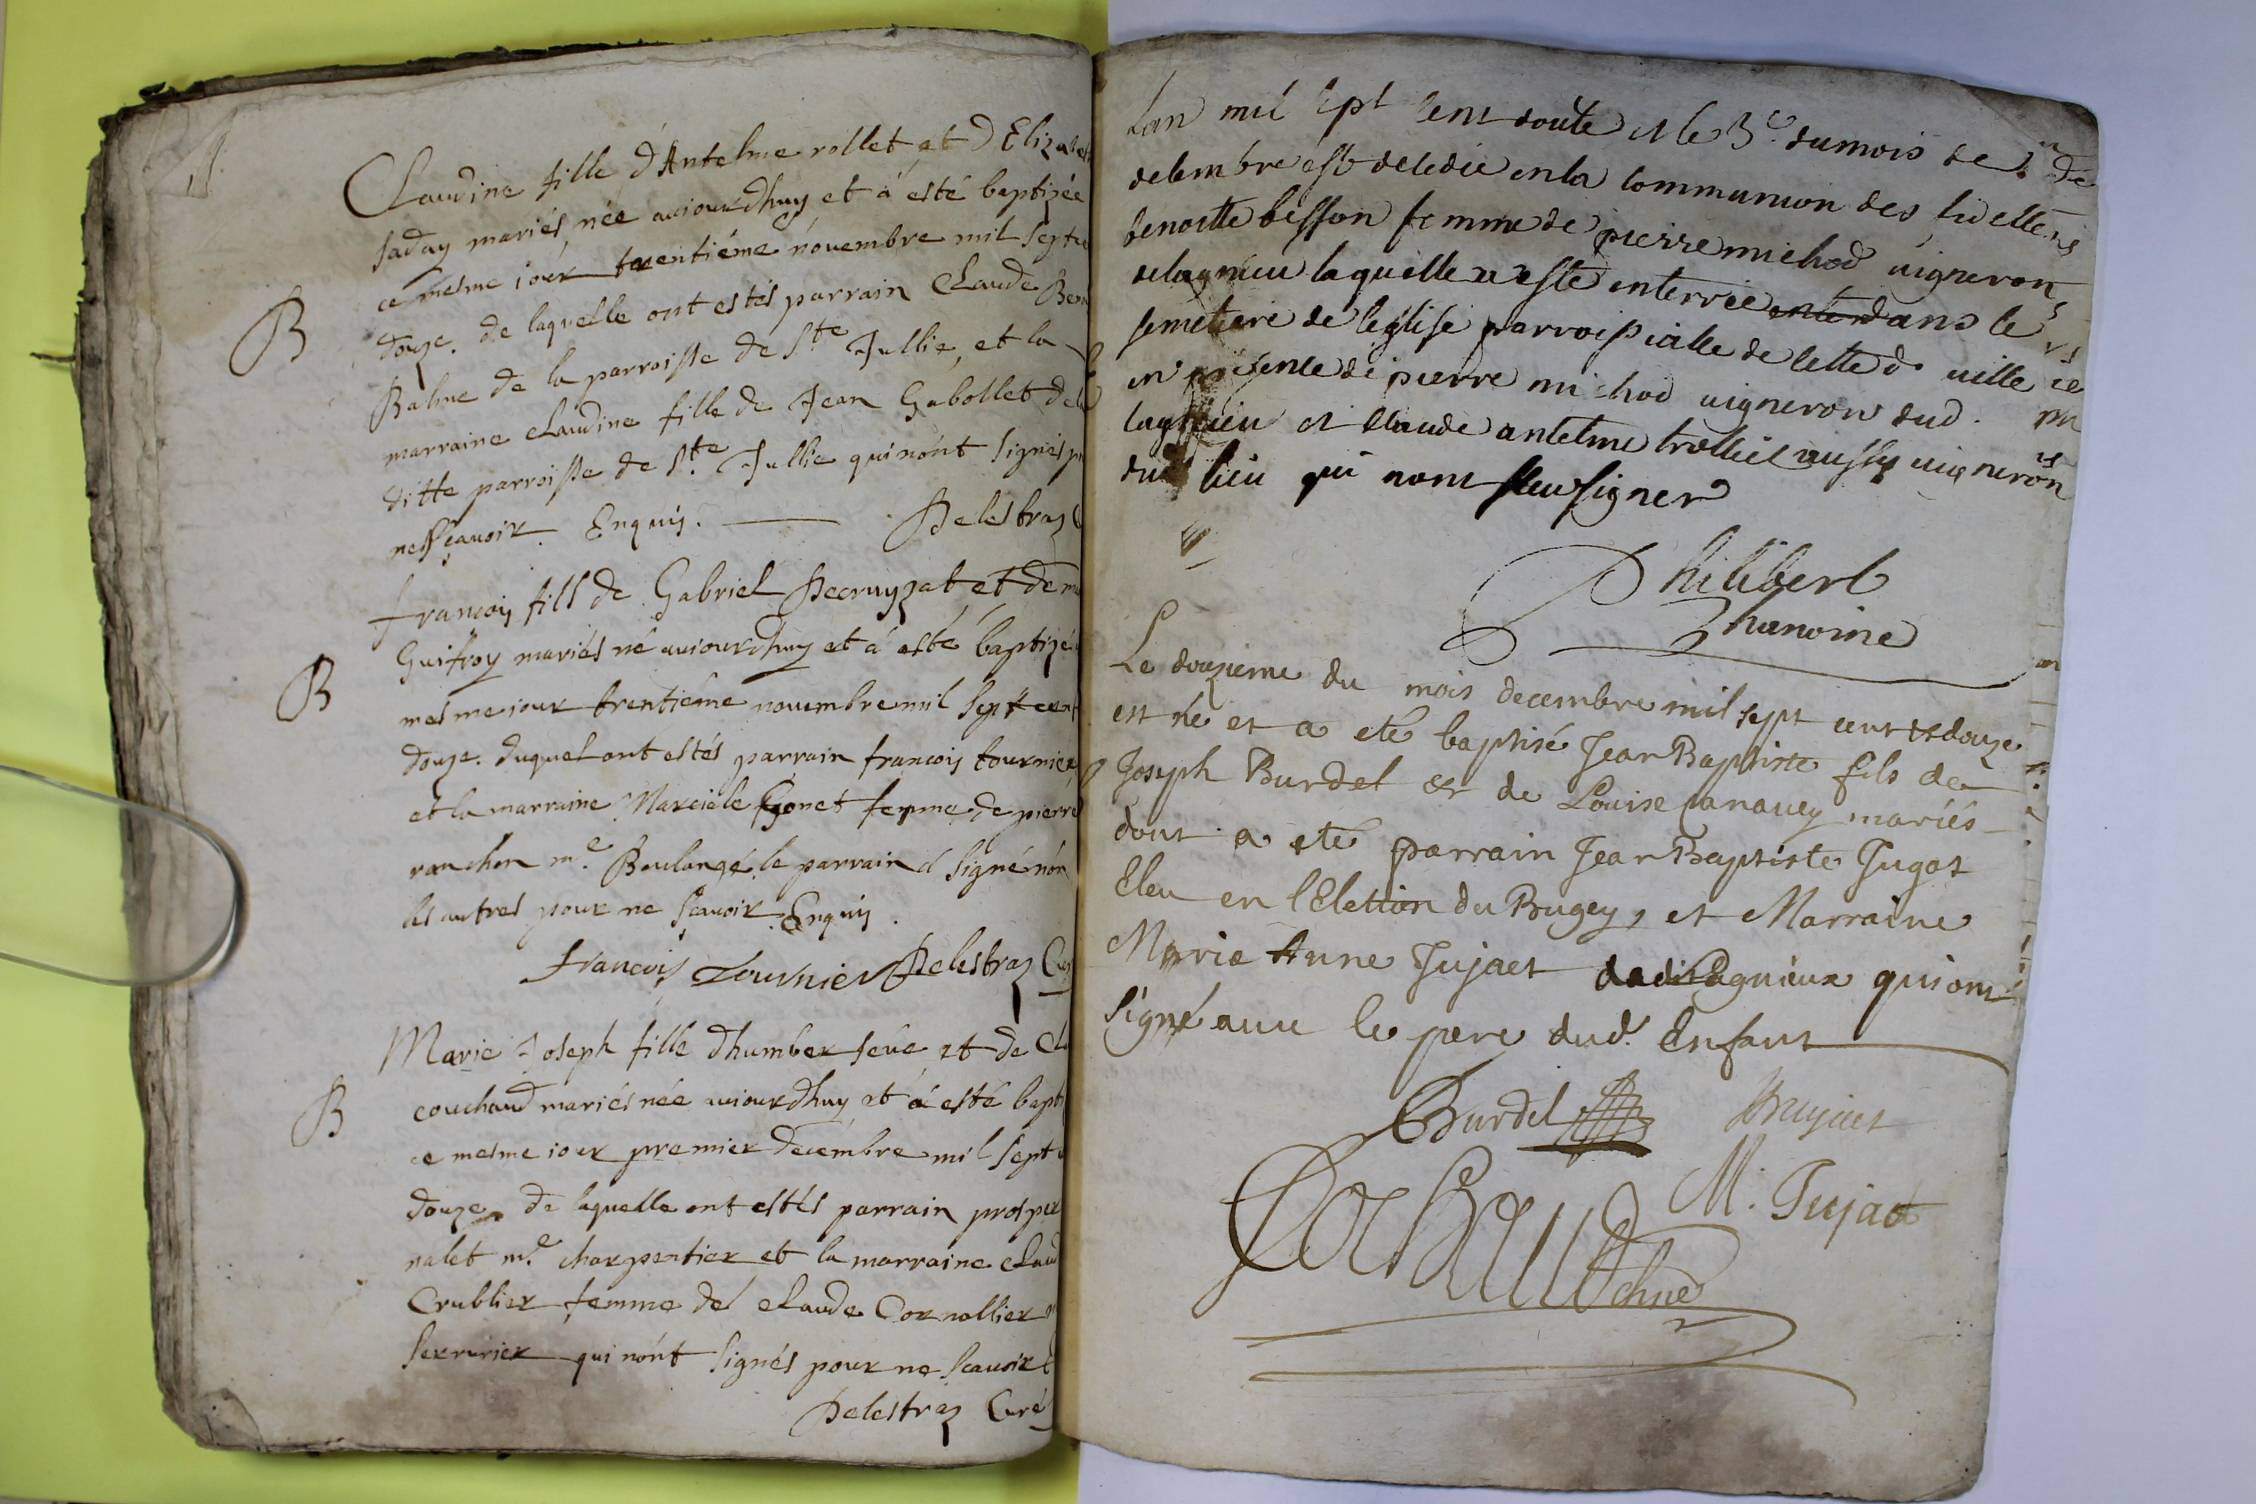 Claudine fille d'Antelme rollet et d Elizabe
saday mariés, née auiourdhuy et à esté baptizée
ce mesme iour trentiéme novembre mil septce
douze. de laquelle ont estés parrain Claude
Balme de la parroisse de Ste Jullie, et la
marraine claudine fille de Jean Gabollet dela
ditte parroisse de Ste Jullie qui nont signés p
nessçavoir Enquis. Delestraz
B
françois fils de Gabriel Decruyzat et de
Guifroy mariés né auiourdhuy et à esté baptizé
mesme iour trentiéme novembre mil sept cent
douze. duquel ont estés parrain françois tournier
et la marraine Marciale Gonet femme de pierre
ranchon me. Boulangé, le parrain à signé non
les autres pour ne sçavoir Enquis.
françois Tournier Delestraz Curé
B
Marie Joseph fille dhumber seve et de Cl
couchaud mariés née auiourdhuy et à esté bapti
ce mesme iour premier decembre mil sept
douze, de laquelle ont estés parrain prosper
nalet me. charpentier et la marraine claud
Crublier femme de claude Cornollier
serrurier qui nont signés pour ne scavoir
Delestraz Curé
B
Lan mil sept cent douze et le 3e. du mois de
decembre est decedée en la communion des fidelles
benoitte besson femme de pierre michod vigneron
de lagnieu laquelle a este enterrée dans le
semetiere de leglise parroissialle de cette d. ville
en presence de pierre michod vigneron dud.
lagnieu et claude antelme trolliet aussy vigneron
dud lieu qui nont sceu signer
Philibert
Chanoine
Le douzieme du mois decembre mil sept cent et douze
est né et a eté baptisé Jean Baptiste fils de
Joseph Burdel et de Louise Canavey mariés
dont a eté parrain Jean Baptiste Jugat
Eleu en l'Election du Bugey, et Marraine
Marie Anne Jujaet dudit Lagnieux qui ont
signé avec le pere dud. Enfant
Burdel Bujaet
M. Jujaet